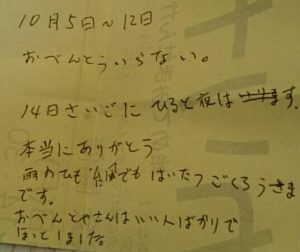 10月5日～12日
おべんとういらない。
14日さいごに ひると夜は いります.
本当にありがとう
雨のひも 台風でも はいたつ ごくろうさま
です。
おべんとやさんはいい人ばかりで
ほっとしました。